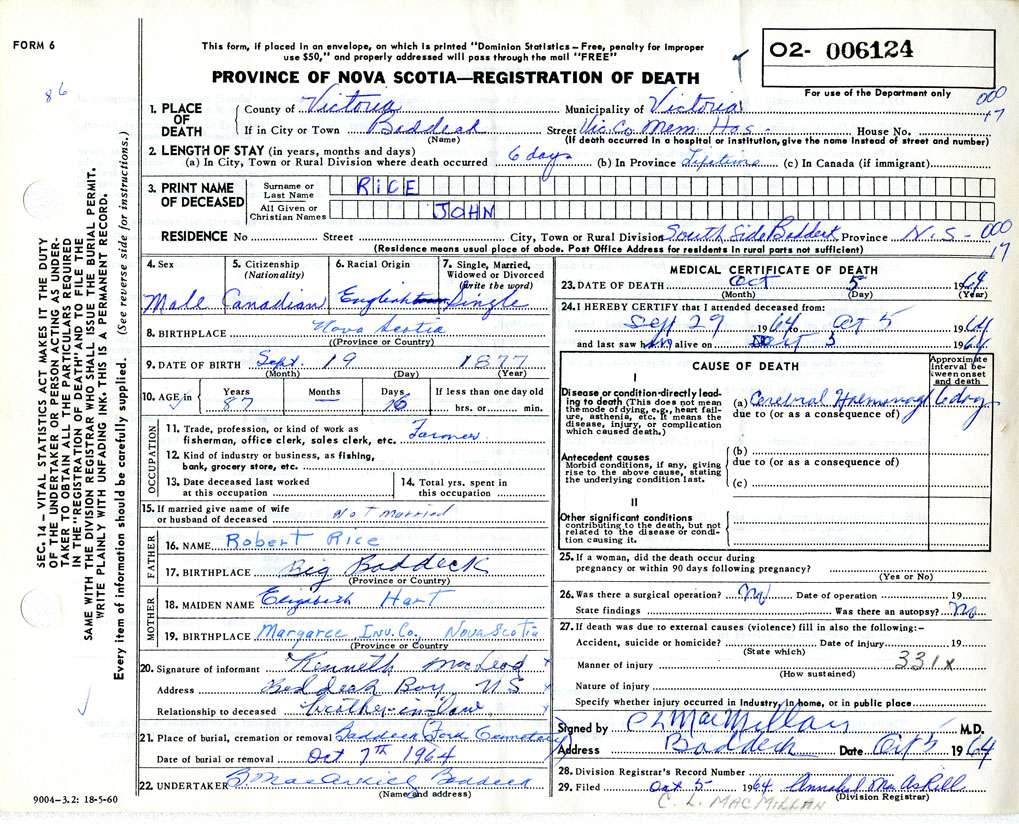 FORM 6
This form, if placed in an envelope, on which is printed "Dominion Statistics – Free, penalty for improper
use $50," and properly addressed will pass through the mail "FREE"
PROVINCE OF NOVA SCOTIA—REGISTRATION OF DEATH
02- 006124
For use of the Department only
86
000
17
1. PLACE OF DEATH
County of Victoria Municipality of Victoria
If in City or Town Baddeck Street Vic. Co. Mem. Hos - House No.
(Name) (If death occurred in a hospital or institution, give the name instead of street and number)
2. LENGTH OF STAY (in years, months and days)
(a) In City, Town or Rural Division where death occurred 6 days (b) In Province Lifetime (c) In Canada (if immigrant)
3. PRINT NAME OF DECEASED
Surname or Last Name RICE
All Given or Christian Names JOHN
RESIDENCE No Street City, Town or Rural Division South Side Baddeck Province N.S - 000
17
(Residence means usual place of abode. Post Office Address for residents in rural parts not sufficient)
4. Sex Male
5. Citizenship (Nationality) Canadian
6. Racial Origin English
7. Single, Married, Widowed or Divorced (Write the word) Single
8. BIRTHPLACE Nova Scotia
(Province or Country)
9. DATE OF BIRTH Sept. 19 1877
(Month) (Day) (Year)
10. AGE in Years 87 Months — Days 16 If less than one day old
hrs. or min.
OCCUPATION
11. Trade, profession, or kind of work as
fisherman, office clerk, sales clerk, etc. Farmer
12. Kind of industry or business, as fishing,
bank, grocery store, etc.
13. Date deceased last worked
at this occupation
14. Total yrs. spent in
this occupation
15. If married give name of wife
or husband of deceased Not Married
FATHER
16. NAME Robert Rice
17. BIRTHPLACE Big Baddeck
(Province or Country)
MOTHER
18. MAIDEN NAME Elizabeth Hart
19. BIRTHPLACE Margaree Inv. Co., Nova Scotia
(Province or Country)
20. Signature of informant Kenneth MacLeod x
Address Baddeck Bay NS x
Relationship to deceased brother-in-law x
21. Place of burial, cremation or removal Baddeck Ford Cemetary
Date of burial or removal Oct 7th 1964
22. UNDERTAKER Baddeck
(Name and address)
9004-3.2: 18-5-60
MEDICAL CERTIFICATE OF DEATH
23. DATE OF DEATH Oct 5 1964
(Month) (Day) (Year)
24. I HEREBY CERTIFY that I attended deceased from:
Sept 29 1964 to Oct 5 1964
and last saw him alive on Oct 5 1964
CAUSE OF DEATH
Approximate interval between onset and death
I
Disease or condition directly leading to death (This does not mean the mode of dying, e.g., heart failure, asthenia, etc. It means the disease, injury, or complication which caused death.)
(a) Cerebral Hemorrhage 6 days
due to (or as a consequence of)
Antecedent causes
Morbid conditions, if any, giving rise to the above cause, stating the underlying condition last.
(b)
due to (or as a consequence of)
(c)
II
Other significant conditions
contributing to the death, but not related to the disease or condition causing it.
25. If a woman, did the death occur during
pregnancy or within 90 days following pregnancy?
(Yes or No)
26. Was there a surgical operation? No Date of operation 19
State findings Was there an autopsy? No
27. If death was due to external causes (violence) fill in also the following:-
Accident, suicide or homicide? Date of injury 19
(State which)
Manner of injury 331x
(How sustained)
Nature of injury
Specify whether injury occurred in industry, in home, or in public place
Signed by C L MacMillan M.D.
Address Baddeck Date Oct 5 1964
28. Division Registrar's Record Number
29. Filed Oct 5 1964 Annabel MacAskill
(Division Registrar)
C. L. MACMILLAN
SEC. 14 – VITAL STATISTICS ACT MAKES IT THE DUTY
OF THE UNDERTAKER OR PERSON ACTING AS UNDER-
TAKER TO OBTAIN ALL THE PARTICULARS REQUIRED
IN THE "REGISTRATION OF DEATH" AND TO FILE THE
SAME WITH THE DIVISION REGISTRAR WHO SHALL ISSUE THE BURIAL PERMIT.
WRITE PLAINLY WITH UNFADING INK. THIS IS A PERMANENT RECORD.
Every item of information should be carefully supplied. (See reverse side for instructions.)